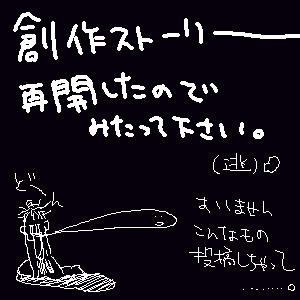 創作ストーリー
再開したので
みたって下さい。
(逃)
どーん
すいません
こんなもの
投稿しちゃって
………。